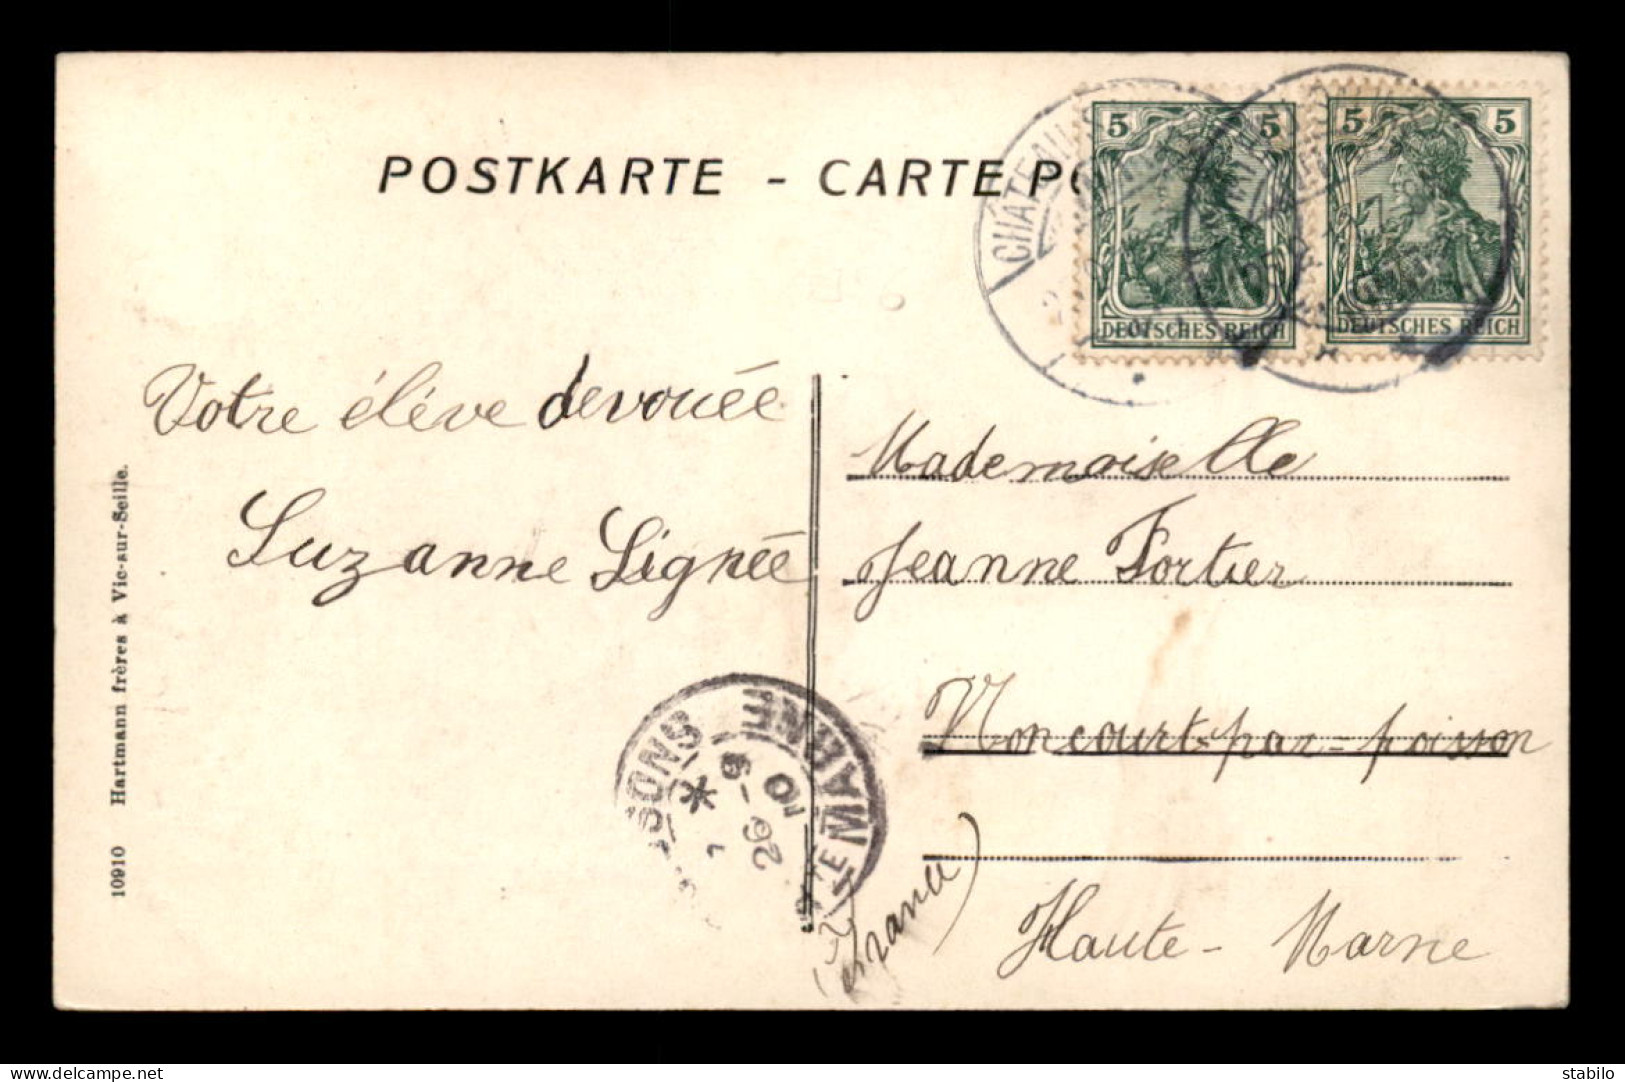 POSTKARTE - CARTE PO
CHÂTEAU
5 5
DEUTSCHES REICH
5 5
DEUTSCHES REICH
Votre élève devouée
Suzanne Lignée
Mademoiselle
Jeanne Fortier
Noncourt-par-poisson
Haute-Marne
(France)
SONS
26-9
10
TE MARNE
10910 Hartmann frères à Vic-sur-Seille.
www.delcampe.net
stabilo